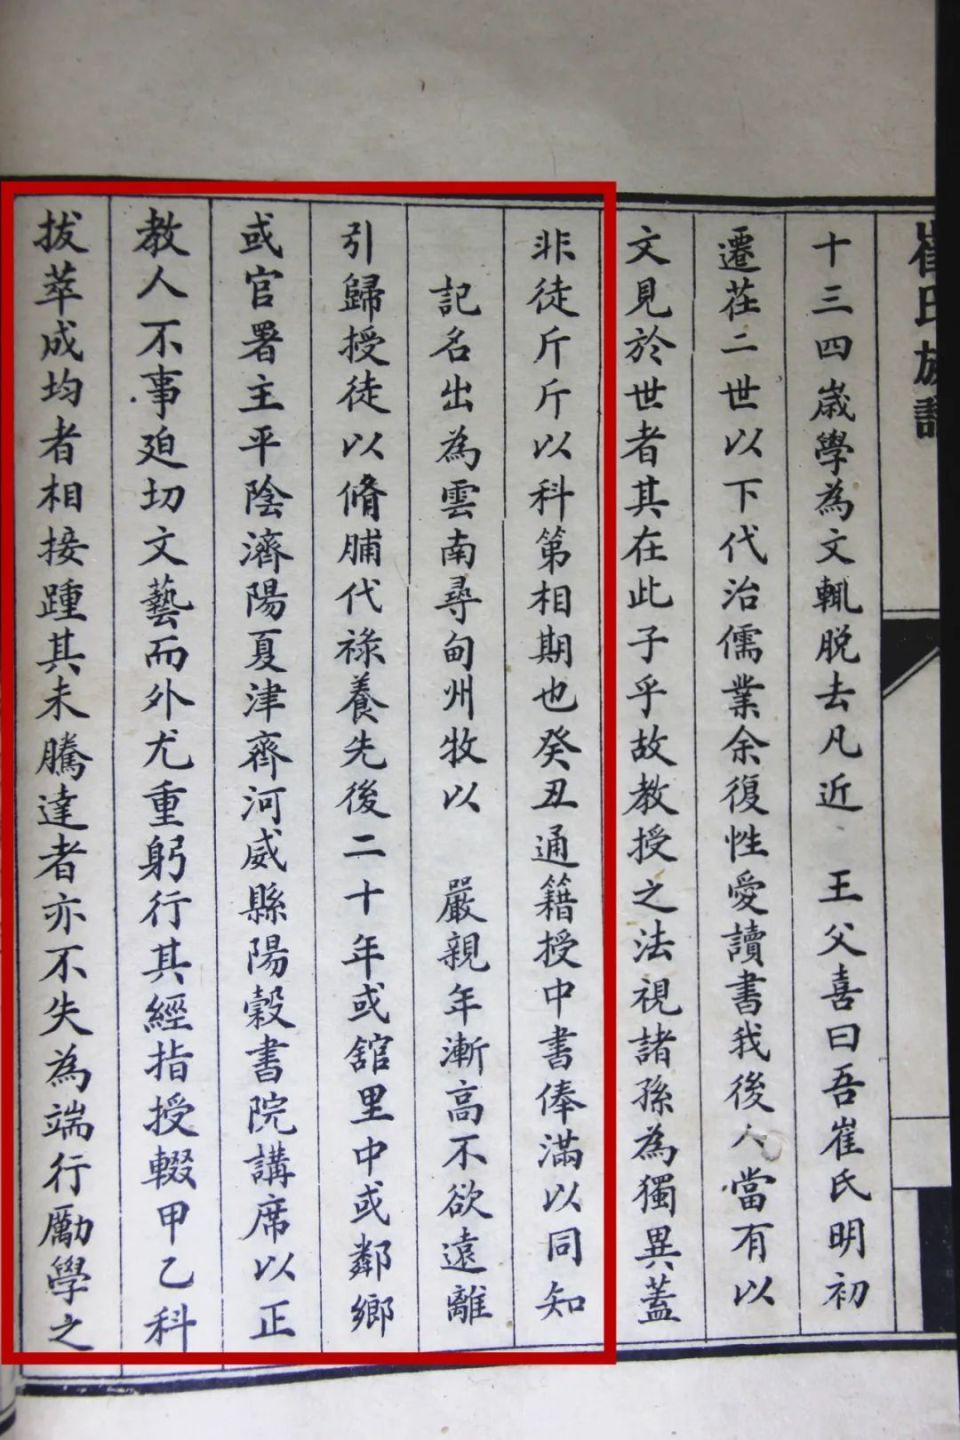 崔氏族譜
十三四歲學為文輒脱去凡近 王父喜曰吾崔氏明初
遷茌二世以下代治儒業余復性愛讀書我後人當有以
文見於世者其在此子乎故教授之法視諸孫為獨異蓋
非徒斤斤以科第相期也癸丑通籍授中書俸滿以同知
記名出為雲南尋甸州牧以 嚴親年漸高不欲遠離
引歸授徒以脩脯代祿養先後二十年或舘里中或鄰鄉
或官署主平陰濟陽夏津齊河威縣陽穀書院講席以正
教人不事廹切文藝而外尤重躬行其經指授輟甲乙科
拔萃成均者相接踵其未騰達者亦不失為端行勵學之